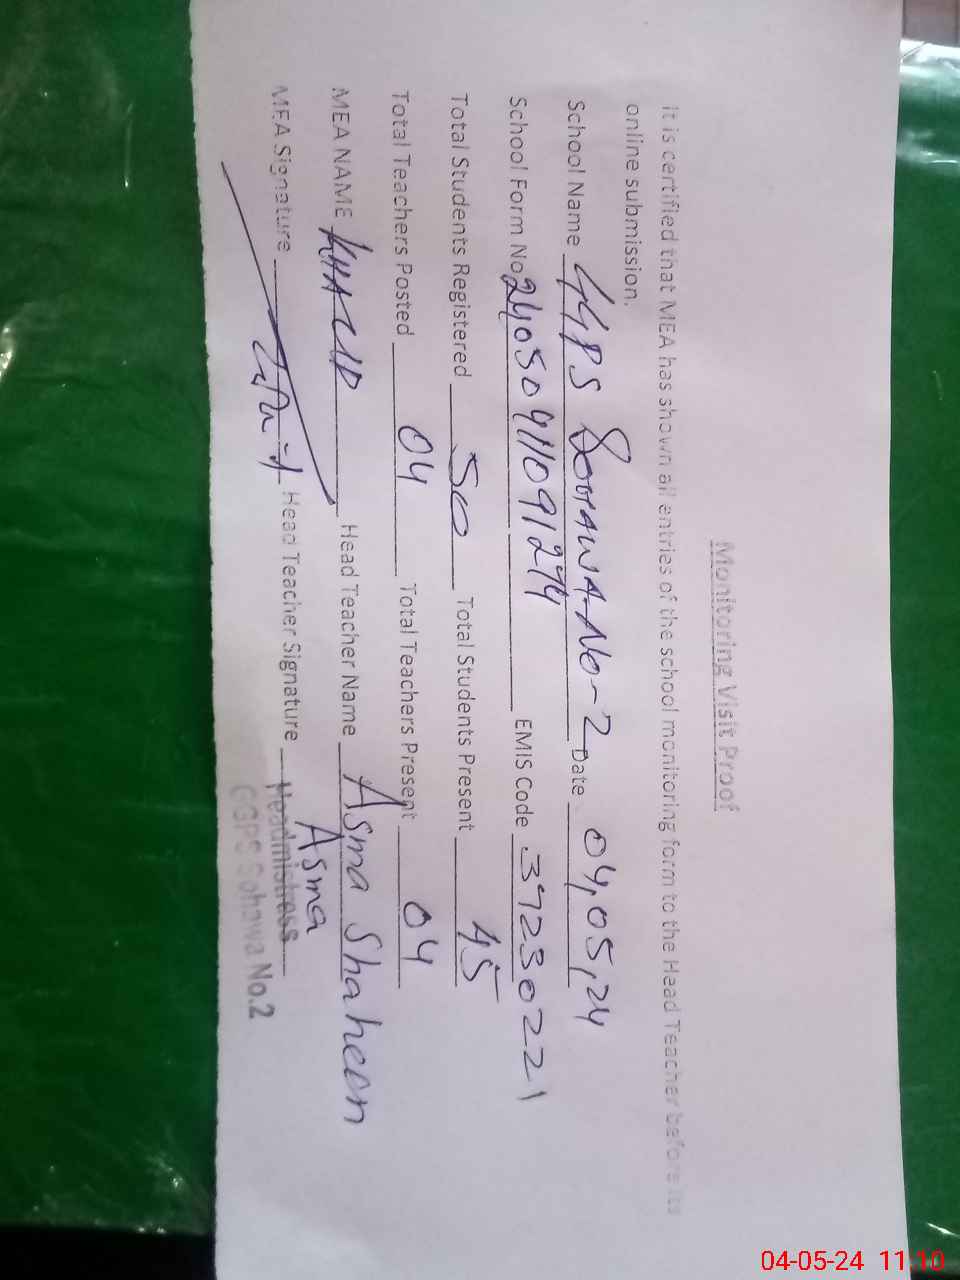 Monitoring Visit Proof
It is certified that MEA has shown all entries of the school monitoring form to the Head Teacher before its
online submission.
School Name GGPS SOHAWA-NO-2 Date 04,05,24
School Form No 24050411091274 EMIS Code 37230221
Total Students Registered 50 Total Students Present 45
Total Teachers Posted 04 Total Teachers Present 04
MEA NAME KHALID Head Teacher Name Asma Shaheen
MEA Signature Head Teacher Signature Asma
Headmistress
GGPS Sohawa No.2
04-05-24 11:10